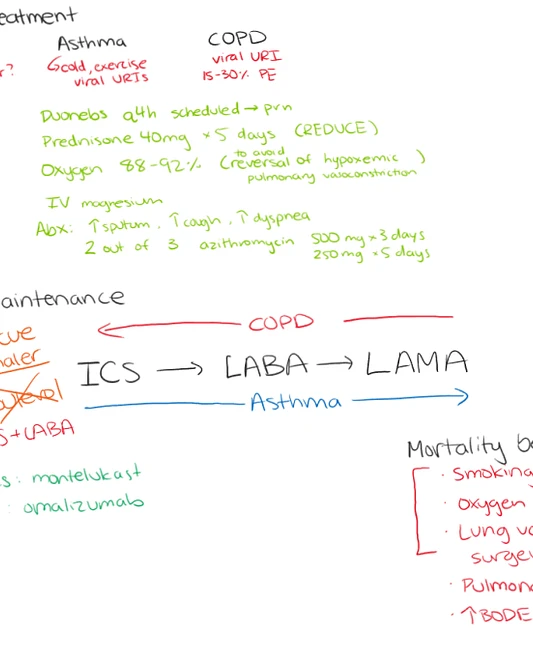 eatment
Asthma COPD
r? Gcold, exercise viral URI
viral URIs 15-30% PE
Duonebs q4h scheduled → prn
Prednisone 40mg × 5 days (REDUCE)
to avoid
Oxygen 88-92% (reversal of hypoxemic )
pulmonary vasoconstriction
IV magnesium
Abx: ↑sputum, ↑cough, ↑dyspnea
2 out of 3 azithromycin 500 mg × 3 days
250 mg × 5 days
aintenance
cue
haler
COPD
ICS → LABA → LAMA
Asthma
S+LABA
Mortality be
s: montelukast
· Smoking
: omalizumab
· Oxygen
· Lung vo
surge
· Pulmon
· ↑BODE